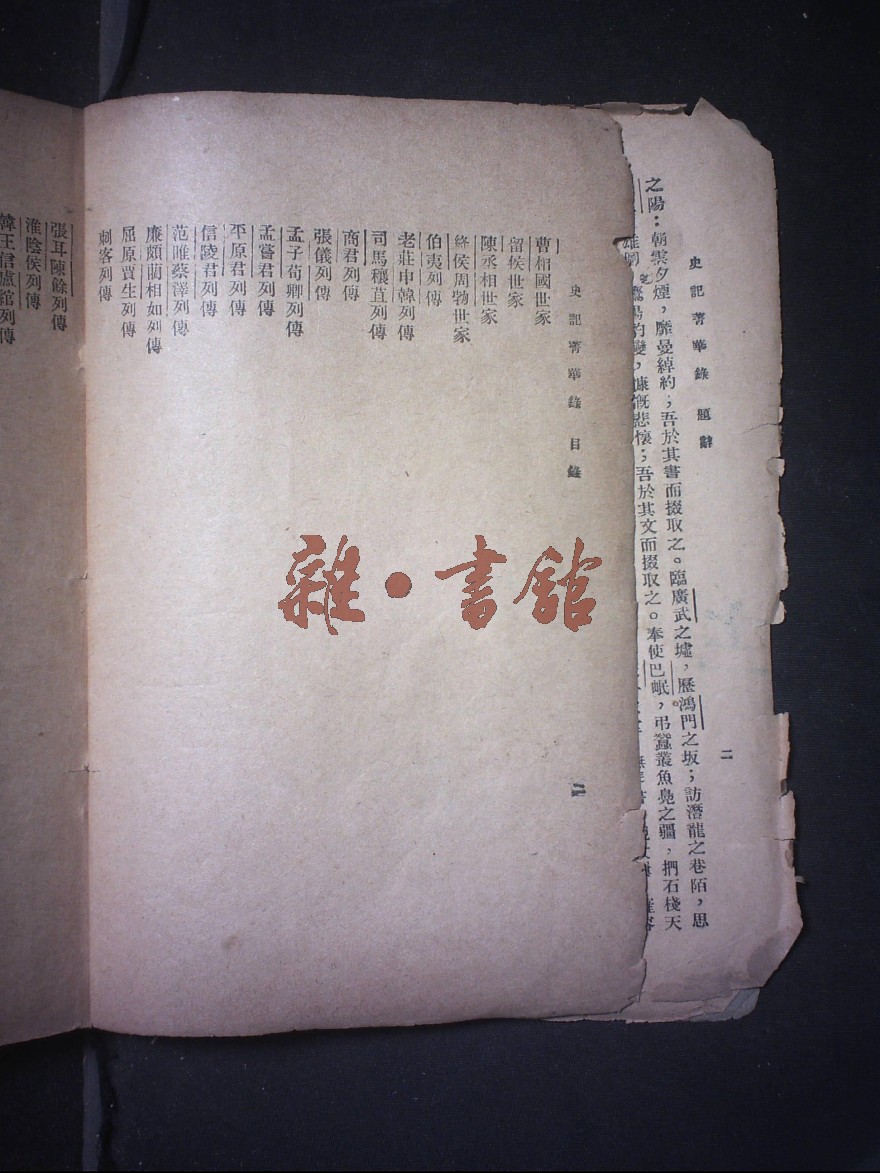 史記菁華錄 題辭
二
之陽：朝雲夕煙，靡曼綽約；吾於其書而掇取之。臨廣武之墟，歷鴻門之坂；訪潛龍之巷陌，思
豹變，慷慨悲懷；吾於其文而掇取之。奉使巴岷，弔蠶叢魚鳧之疆，捫石棧天
史記菁華錄 目錄
二
曹相國世家
留侯世家
陳丞相世家
絳侯周勃世家
伯夷列傳
老莊申韓列傳
司馬穰苴列傳
商君列傳
張儀列傳
孟子荀卿列傳
孟嘗君列傳
平原君列傳
信陵君列傳
范雎蔡澤列傳
廉頗藺相如列傳
屈原賈生列傳
刺客列傳
張耳陳餘列傳
淮陰侯列傳
韓王信盧綰列傳
雜·書館